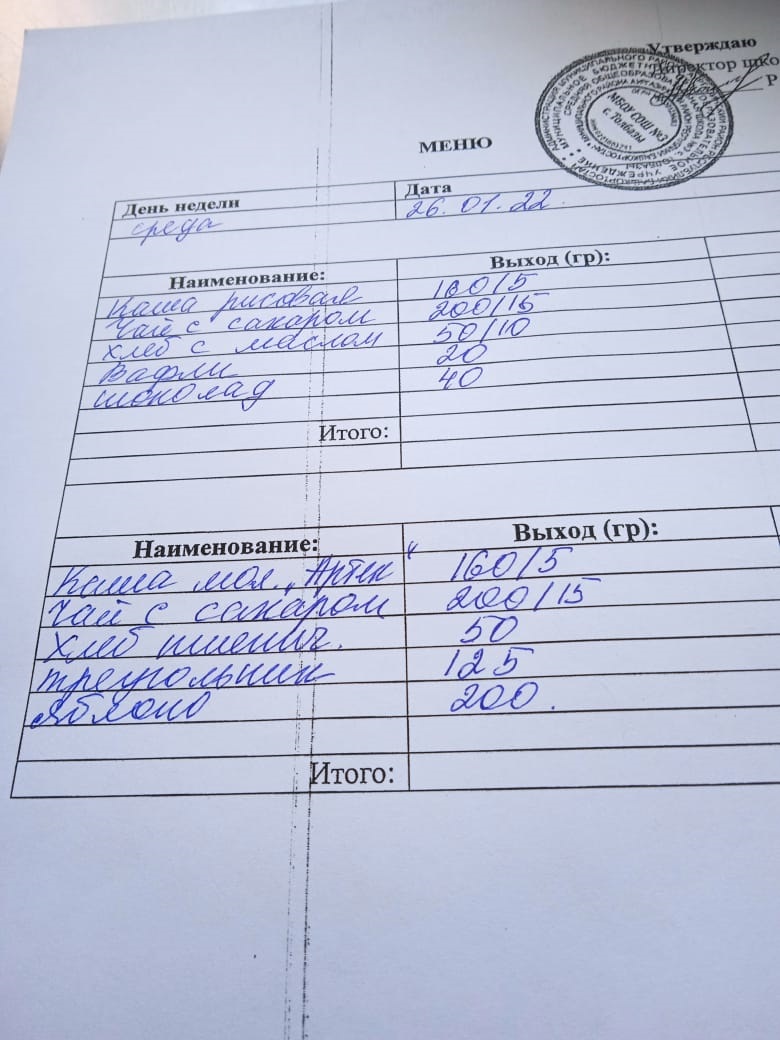 Утверждаю
Директор шко
Р
МБОУ СОШ №2
с. Толбазы
МЕНЮ
День недели Дата
среда 26.01.22.
Наименование: Выход (гр):
Каша рисовая 160/5
Чай с сахаром 200/15
Хлеб с маслом 50/10
Вафли 20
шоколад 40
Итого:
Наименование: Выход (гр):
Каша мол. „Артек“ 160/5
Чай с сахаром 200/15
Хлеб пшенич. 50
треугольник 125
Яблоко 200.
Итого: